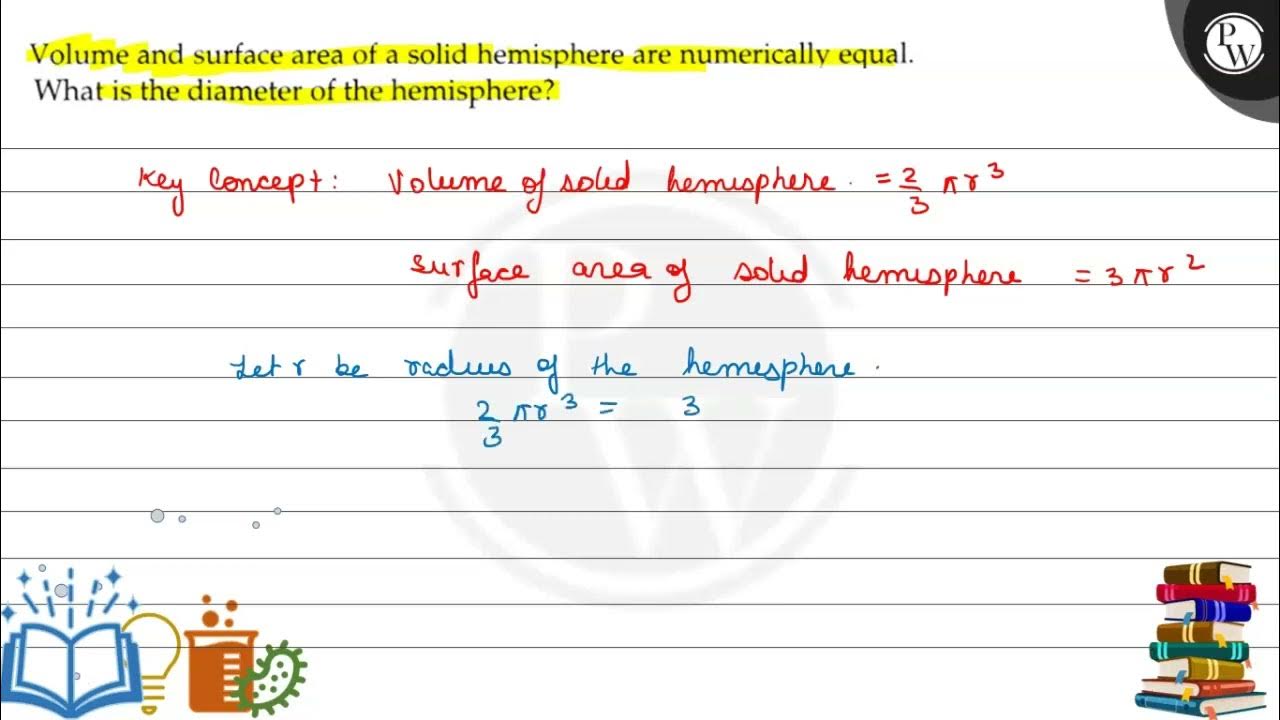 Volume and surface area of a solid hemisphere are numerically equal.
What is the diameter of the hemisphere?
PW
Key Concept: Volume of solid hemisphere. = 2/3 πr³
Surface area of solid hemisphere = 3πr²
Let r be radius of the hemesphere.
2/3 πr³ = 3
PW